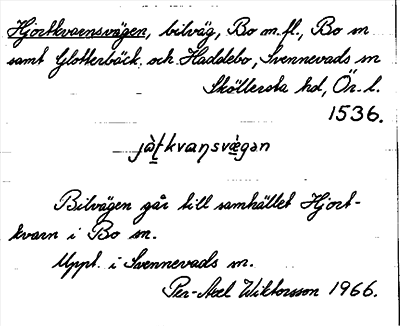 Hjortkvarnsvägen, bilväg, Bo m.fl., Bo sn
samt Glotterbäck och Haddebo, Svennevads sn
Sköllersta hd, Ör. l.
1536.
Bilvägen går till samhället Hjort-
kvarn i Bo sn.
Uppt. i Svennevads sn.
Per-Axel Wiktorsson 1966.